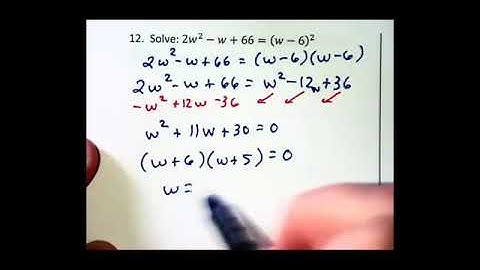 12. Solve: 2w² − w + 66 = (w − 6)²
2w² − w + 66 = (w − 6)(w − 6)
2w² − w + 66 = w² − 12w + 36
−w² + 12w − 36
w² + 11w + 30 = 0
(w + 6)(w + 5) = 0
w =